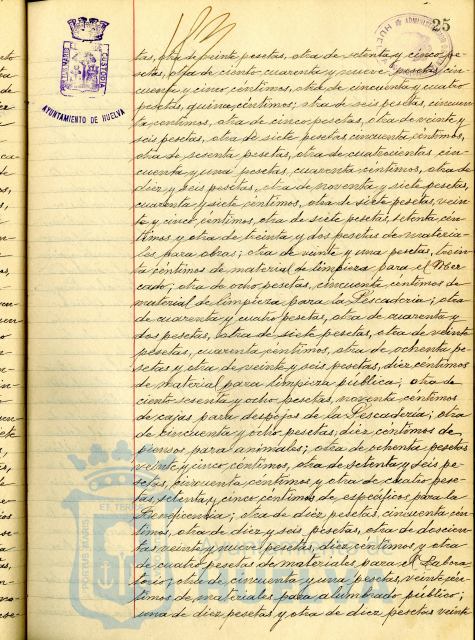 25
AYUNTAMIENTO DE HUELVA
CUSTODIA
tas, otra de veinte pesetas, otra de setenta y cinco pe-
setas, otra de ciento cuarenta y nueve pesetas cin-
cuenta y cinco céntimos, otra de cincuenta y cuatro
pesetas, quince céntimos; otra de seis pesetas, cincuen-
ta céntimos, otra de cinco pesetas, otra de veinte y
seis pesetas, otra de siete pesetas cincuenta céntimos,
otra de sesenta pesetas, otra de cuatrocientas cin-
cuenta y una pesetas, cuarenta céntimos, otra de
diez y seis pesetas, otra de noventa y siete pesetas
cuarenta y siete céntimos, otra de siete pesetas, vein-
te y cinco céntimos, otra de siete pesetas, setenta cén-
timos y otra de treinta y dos pesetas de materia-
les para obras; otra de veinte y una pesetas, trein-
ta céntimos de material de limpieza para el Mer-
cado; otra de ocho pesetas, cincuenta céntimos de
material de limpieza para la Pescadería; otra
de cuarenta y cuatro pesetas, otra de cuarenta y
dos pesetas, otra de siete pesetas, otra de veinte
pesetas, cuarenta céntimos, otra de ochenta pe-
setas y otra de veinte y seis pesetas, diez céntimos
de material para limpieza pública; otra de
ciento sesenta y ocho pesetas, noventa céntimos
de cajas para despojos de la Pescadería; otra
de cincuenta y ocho pesetas, diez céntimos de
piensos para animales; otra de ochenta pesetas
veinte y cinco céntimos, otra de setenta y seis pe-
setas, cincuenta céntimos y otra de cuatro pese-
tas, setenta y cinco céntimos de específicos para la
Beneficencia; otra de diez pesetas, cincuenta cén-
timos, otra de diez y seis pesetas, otra de doscien-
tas veinte y nueve pesetas, diez céntimos y otra
de cuatro pesetas de materiales para el Labora-
torio; otra de cincuenta y una pesetas, veinte cén-
timos de materiales para alumbrado público;
una de diez pesetas y otra de diez pesetas veint
PORTUS MARIS
ET TERRAE
Ayuntamiento de